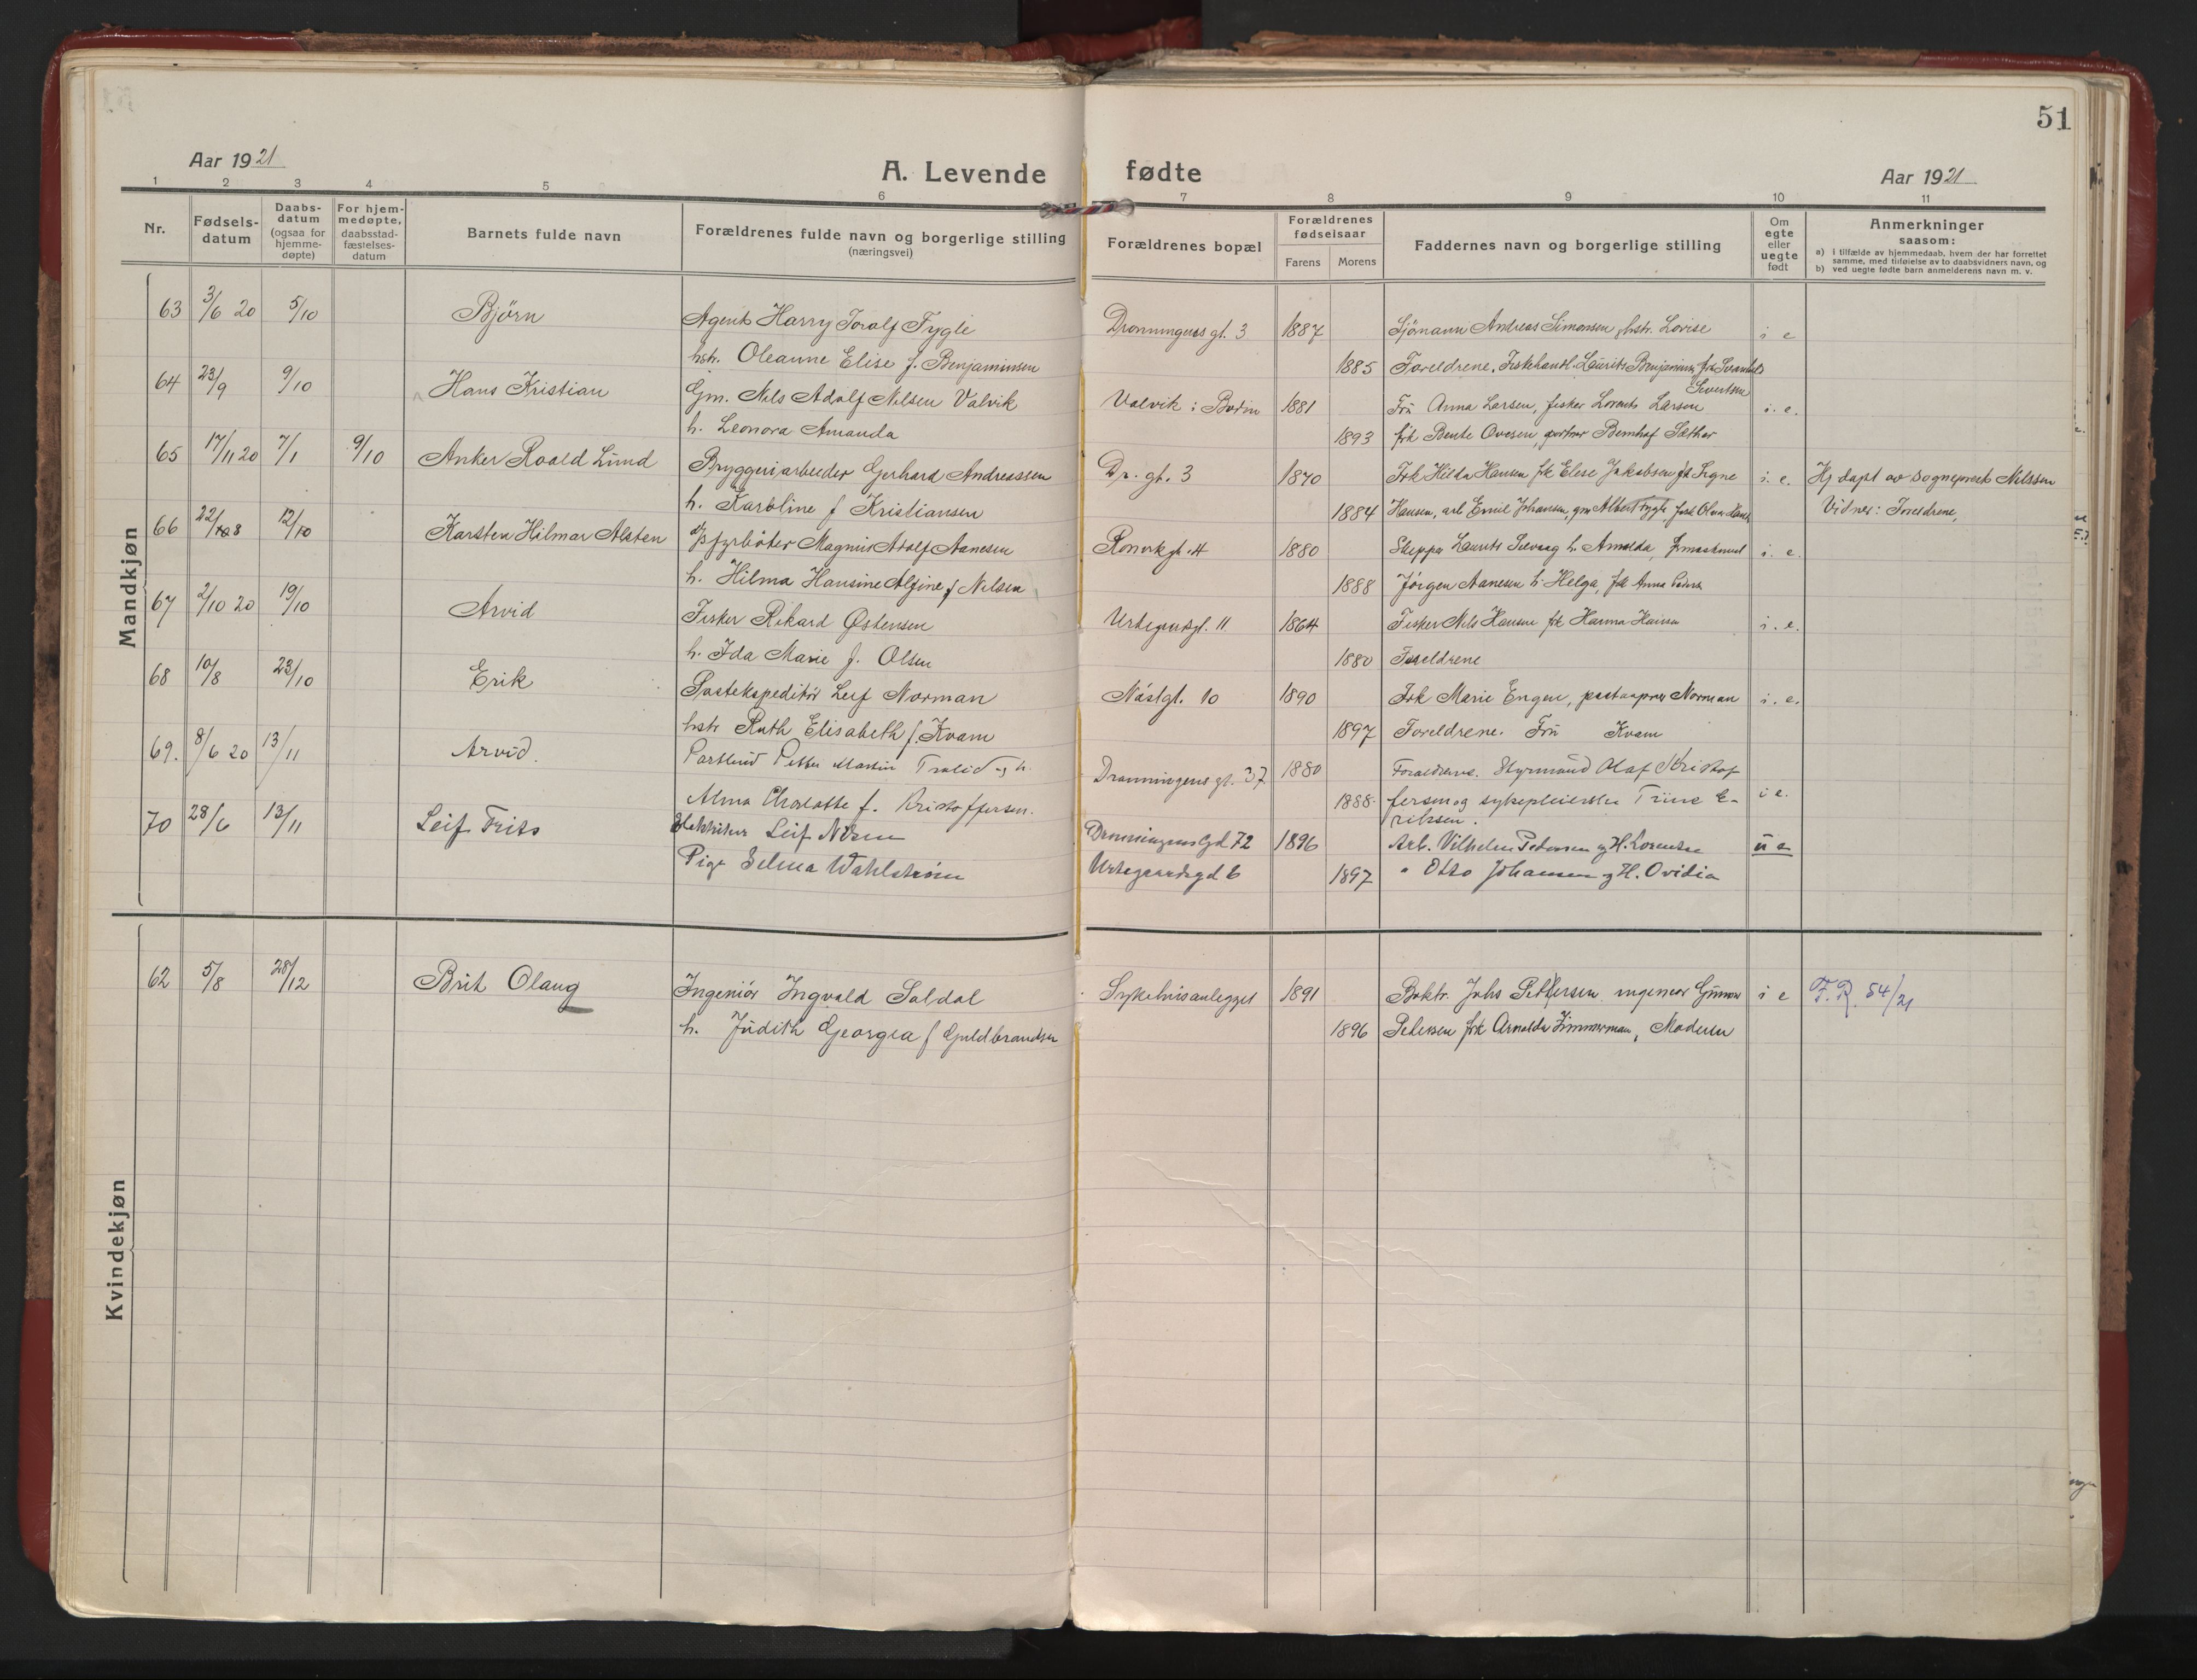 51
Aar 1921
A. Levende fødte
Aar 1921
1 2 3 4 5 6 7 8 9 10 11
Nr.
Fødsels-
datum
Daabs-
datum
(ogsaa for
hjemme-
døpte)
For hjem-
medøpte,
daabsstad-
fæstelses-
datum
Barnets fulde navn
Forældrenes fulde navn og borgerlige stilling
(næringsvei)
Forældrenes bopæl
Forældrenes
fødselsaar
Farens Morens
Faddernes navn og borgerlige stilling
Om
egte
eller
uegte
født
Anmerkninger
saasom:
a) i tilfælde av hjemmedaab, hvem der har forrettet
samme, med tilføielse av to daabsvidners navn, og
b) ved uegte fødte barn anmelderens navn m. v.
Mandkjøn
63 3/6 20 5/10 Bjørn Agent Harry Toralf Fygle Dronningens gt. 3 1887 Sjömann Andreas Simonsen, hstr. Lovise i e
hstr. Oleanne Elise f. Benjaminsen 1885 Foreldrene, Fiskehandl. Laurits Benjaminsen, frk Svanhild
Sivertsen
64 23/9 9/10 Hans Kristian Gm. Nils Adolf Nilsen Valvik Valvik i Bodin 1881 Frü Anna Larsen, fisker Lorents Larsen i. e.
h. Leonora Amanda 1893 frk Bente Ovesen, gartner Bernhof Sæther
65 17/11 20 7/1 9/10 Anker Roald Lünd Bryggeriarbeider Gerhard Andreassen Dr. gt. 3 1870 Frk Hilda Hansen frk Elese Jakobsen frk Signe i. e. Hj døpt av sogneprest Nilssen
h. Karoline f Kristiansen 1884 Hansen, arb Emil Johansen, gm Albert Fygle, Vidner: Foreldrene,
66 22/8 12/10 Karsten Hilmar Alsten d/s fyrböter Magnus Adolf Aanesen 1880 Skipper Laurits Selvaag h. Arnolda, i. e.
h. Hilma Hansine Alfine f Nilsen 1888 Jørgen Aanesen h. Helga, frk Anna
67 2/10 20 19/10 Arvid Fisker Rikard Østensen Urtegardsgt. 11 1864 Fisker Nils Hansen frk Hanna Hansen i. e.
h. Ida Marie f. Olsen 1880 Foreldrene
68 10/8 23/10 Erik Postekspeditör Leif Norman Nástgt. 10 1890 Frk Marie Engen, postaapner Norman i. e.
hstr Ruth Elisabeth f. Kvam 1897 Foreldrene. Frü Kvam
69. 8/6 20 13/11 Arvid. Petter Martin og h. Dronningens gt. 37 1880 Foreldrene. Styrmand Olaf Kristof
Alma Charlotte f. Kristoffersen. 1888. fersen og sykepleierske Trine E- i e.
riksen.
70 28/6 13/11 Leif Frits Elektriker Leif Dronningensgd 72 1896 Arb. Vilhelm Pedersen og H. Lorentse ü e
Pige Selma Wahlstrøm Urtegaardsgd 6 1897 " Otto Johansen og H. Ovidia
Kvindekjøn
62 5/8 28/12 Brit Olaug Ingeniör Ingvald Soldal Sykehusanlegget 1891 Boktr. Johs Pettersen, ingeniør Gunnar i e F.R. 54/21
h. Jüdith Georgea f Guldbrandsen 1896 Petersen frk Arnolda Zimmerman, Moderen